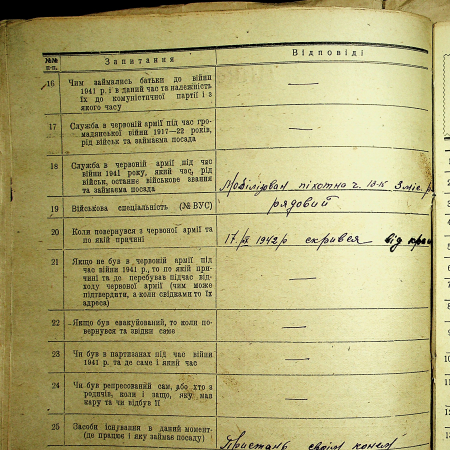 №№ п-п.
Запитання
Відповіді
16 Чим займались батьки до війни
1941 р. і в даний час та належність
їх до комуністичної партії і з
якого часу
—
17 Служба в червоній армії під час гро-
мадянської війни 1917—22 років,
рід військ та займаєма посада
—
18 Служба в червоній армії під час
війни 1941 року, який час, рід
військ, останнє військове звання
та займаєма посада
Мобілізван піхотна ч.
рядовий
19 Військова спеціальність (№ ВУС)
20 Коли повернувся з червоної армії та
по якій причині
17/ 1942/р скрився від
21 Якщо не був в червоній армії під
час війни 1941 р., то по якій при-
чині та де перебував підчас від-
ходу червоної армії (чим може
підтвердити, а коли свідками то їх
адреса)
—
22 Якщо був евакуйований, то коли по-
вернувся та звідки саме
—
23 Чи був в партизанах під час війни
1941 р. та де саме і який час
—
24 Чи був репресований сам, або хто з
родичів, коли і защо, яку мав
кару та чи відбув її
—
25 Засоби існування в даний момент-
(де працює і яку займає посаду)
своїм конем